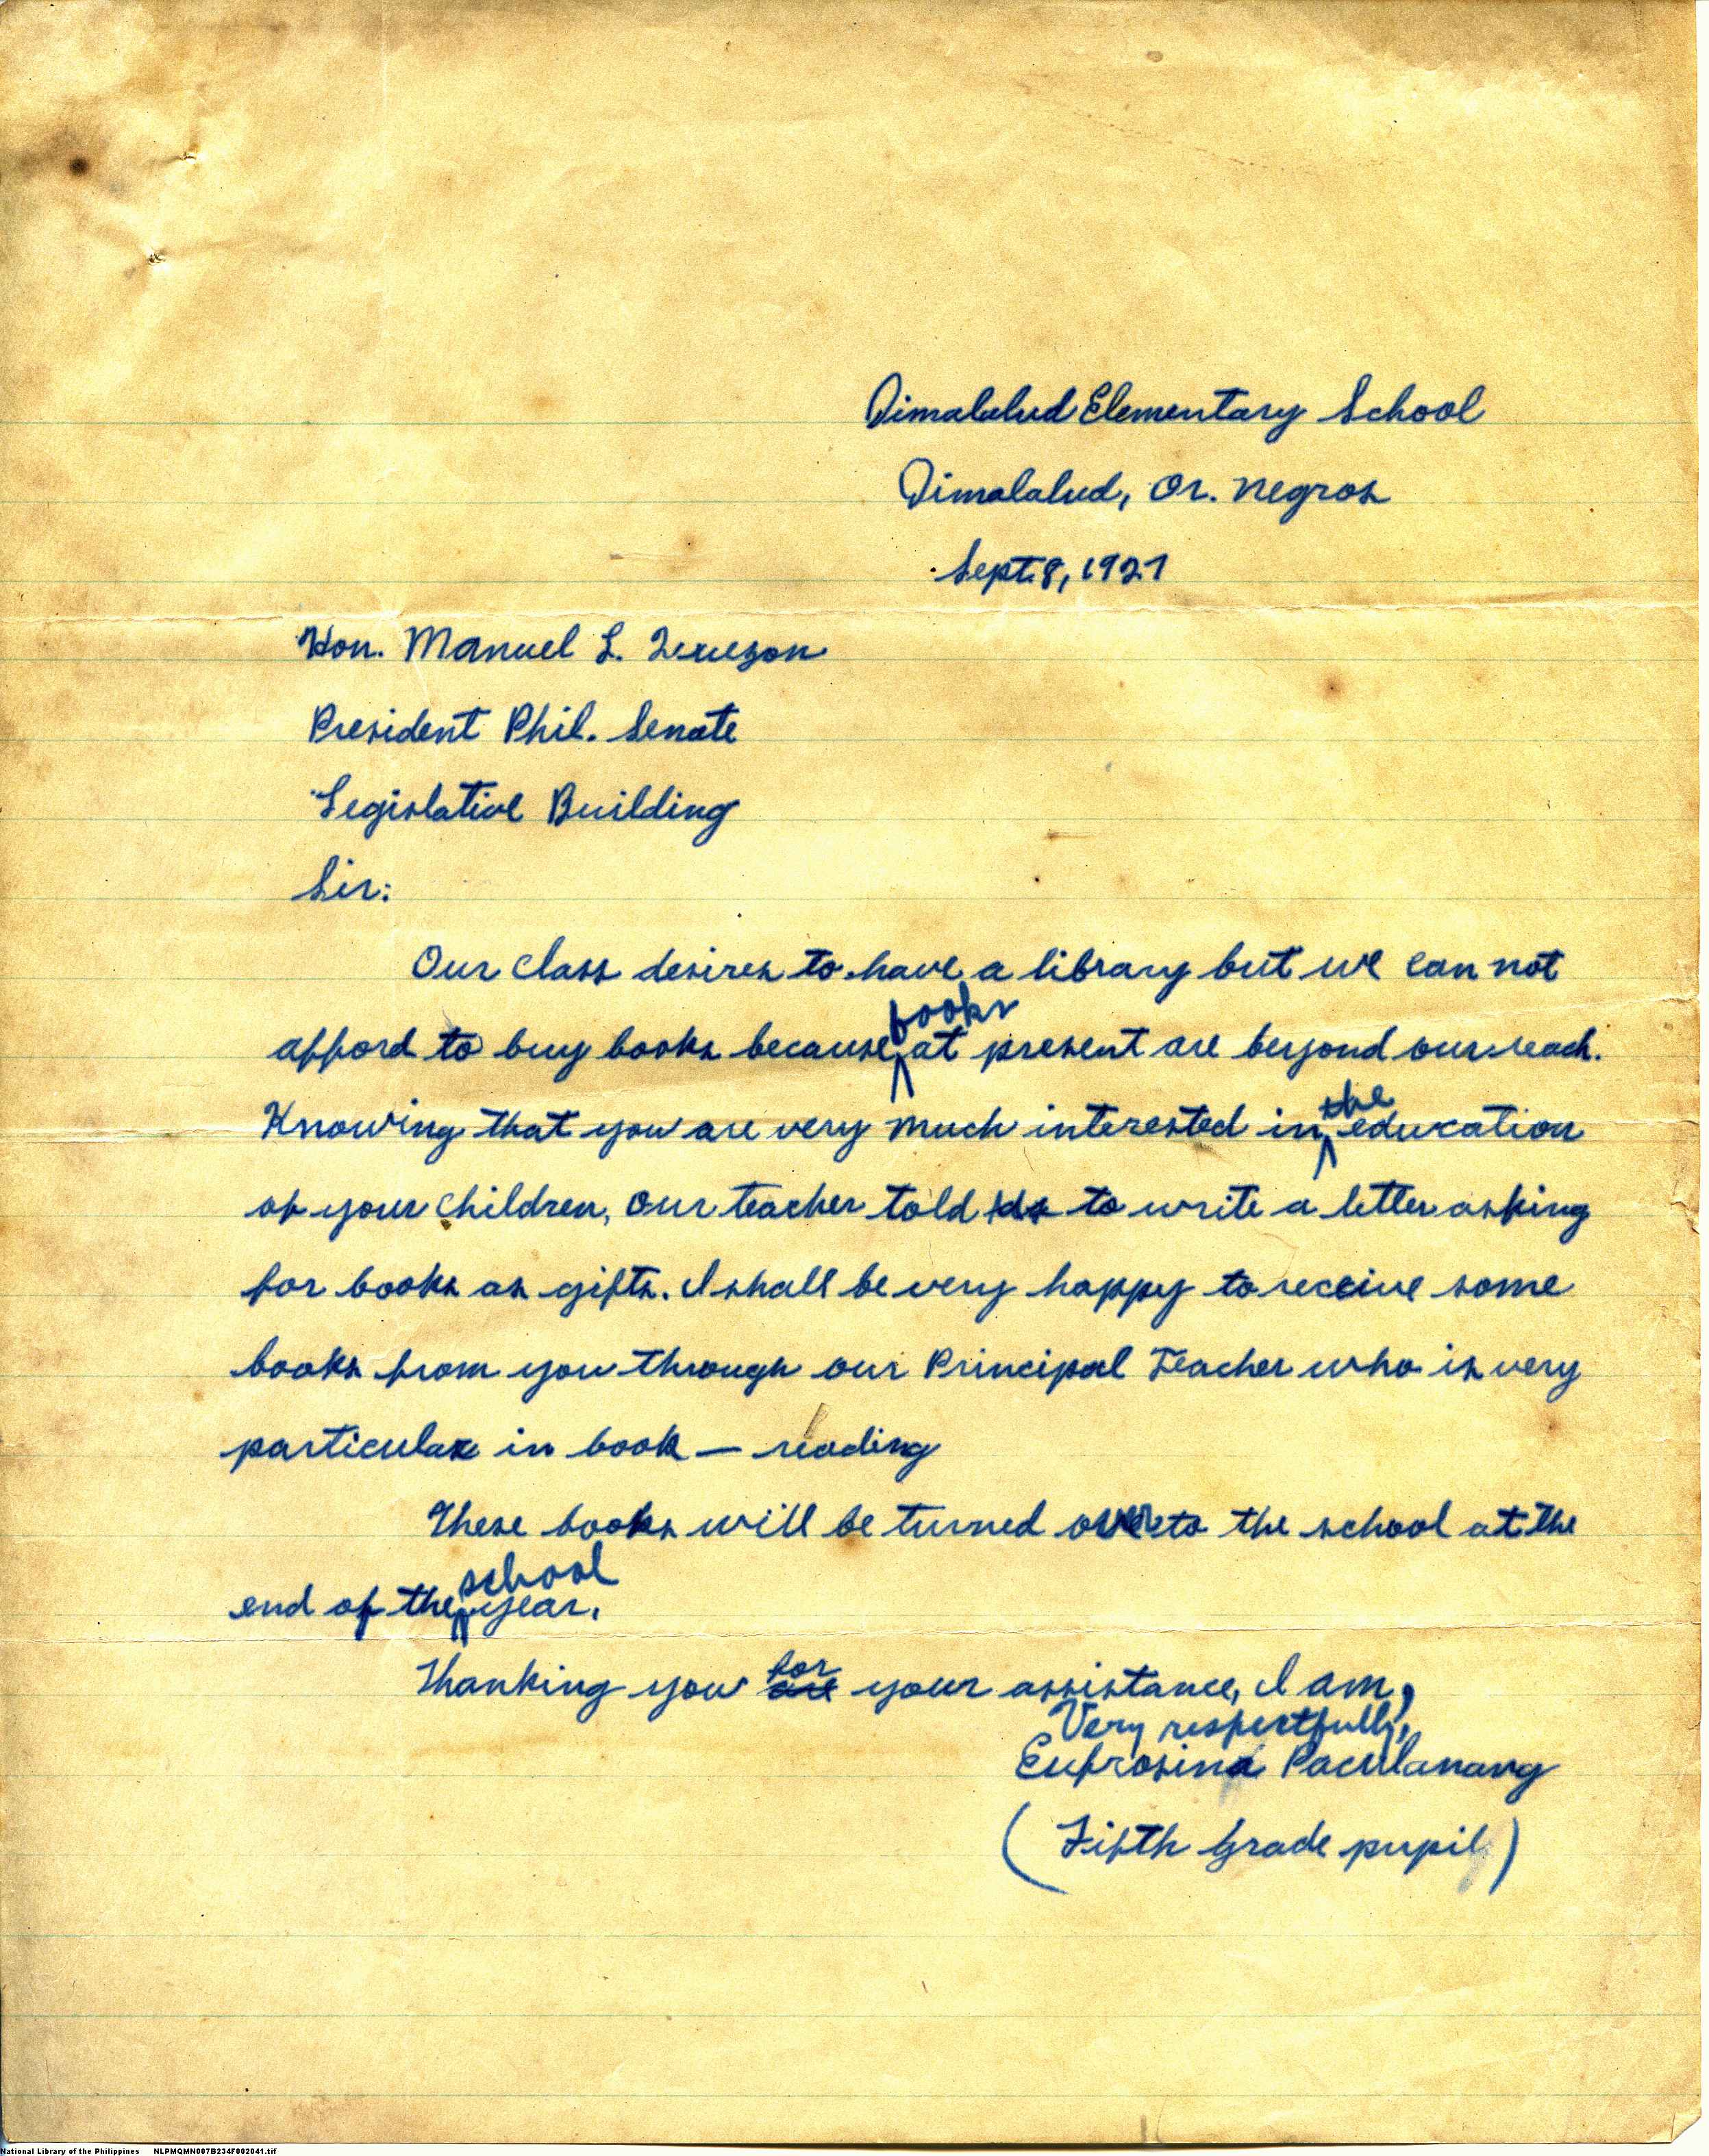 Dimalalud Elementary School
Dimalalud, Or. Negros
Sept. 8, 1927
Hon. Manuel L. Queuzon
President Phil. Senate
Legislative Building
Sir:
Our class desires to have a library but we can not
books
afford to buy books because at present are beyond our reach.
the
Knowing that you are very much interested in education
of your children, our teacher told us to write a letter asking
for books as gifts. I shall be very happy to receive some
books from you through our Principal Teacher who is very
particular in book — reading
These books will be turned over to the school at the
school
end of the year.
for
Thanking you are your assistance, I am,
Very respectfully,
Eufrosina Paculanang
(Fifth Grade pupil)
National Library of the Philippines NLPMQMN007B234F002041.tif